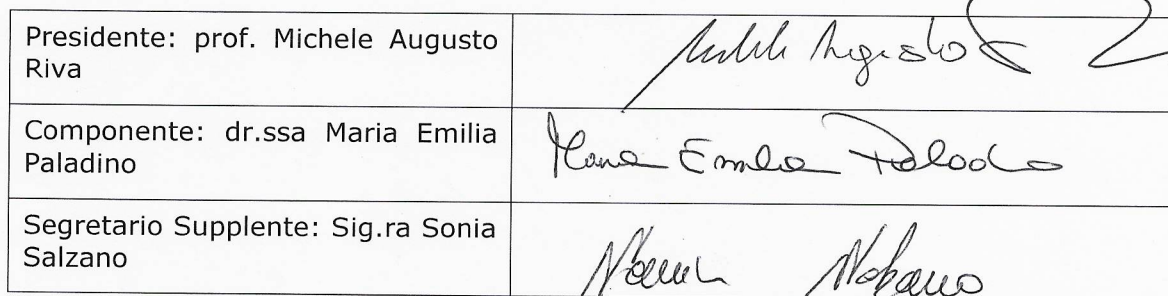 Presidente: prof. Michele Augusto
Riva
Michele Augusto
Componente: dr.ssa Maria Emilia
Paladino
Maria Emilia Paladino
Segretario Supplente: Sig.ra Sonia
Salzano